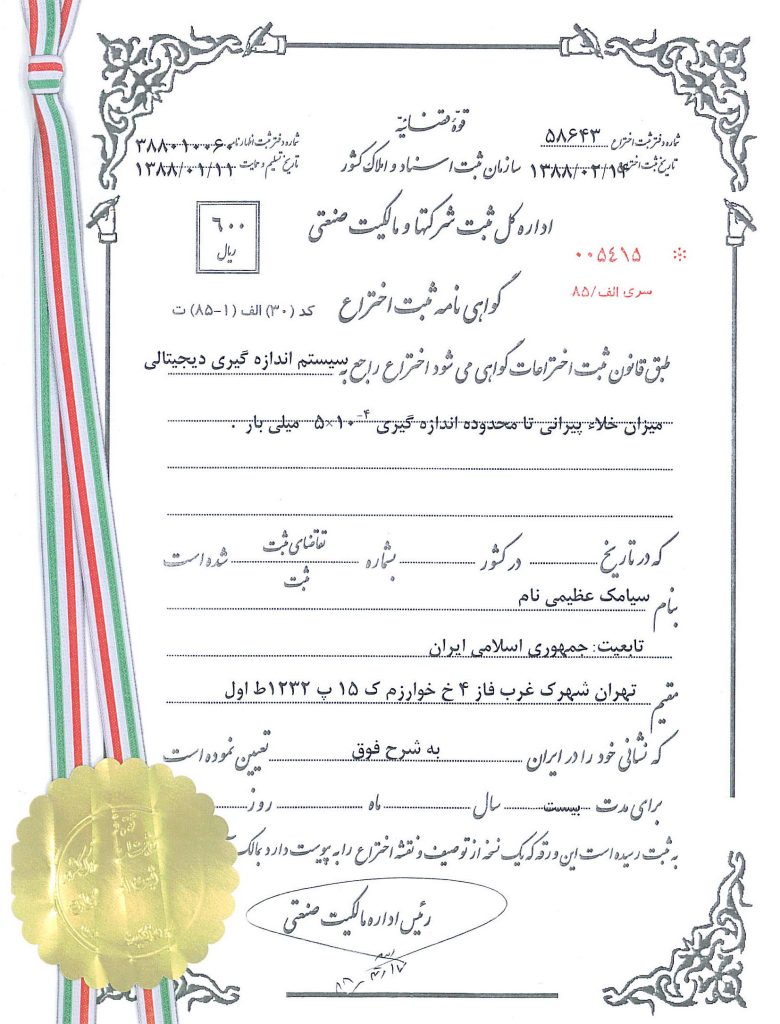 قوهٔ قضائیه
شماره دفتر ثبت اختراع ۵۸۶۴۳
شماره دفتر ثبت اظهارنامه ۳۸۸۰۱۰۰۶۰
سازمان ثبت اسناد و املاک کشور
تاریخ ثبت اختراع ۱۳۸۸/۰۲/۱۴
تاریخ تسلیم و حمایت ۱۳۸۸/۰۱/۱۱
اداره کل ثبت شرکتها و مالکیت صنعتی
۶۰۰
ریال
* ۰۰۵۴۱۵
سری الف/۸۵
گواهی نامه ثبت اختراع
کد (۳۰) الف (۱-۸۵) ت
طبق قانون ثبت اختراعات گواهی می شود اختراع راجع به سیستم اندازه گیری دیجیتالی
میزان خلاء پیرانی تا محدوده اندازه گیری ۵×۱۰⁻⁴ میلی بار .
که در تاریخ در کشور بشماره تقاضای ثبت شده است
ثبت
بنام سیامک عظیمی نام
تابعیت: جمهوری اسلامی ایران
مقیم تهران شهرک غرب فاز ۴ خ خوارزم ک ۱۵ پ ۱۲۳۲ط اول
که نشانی خود را در ایران به شرح فوق تعیین نموده است
برای مدت بیست سال ماه روز
به ثبت رسیده است این ورقه که یک نسخه از توصیف و نقشه اختراع را به پیوست دارد بمالک
رئیس اداره مالکیت صنعتی